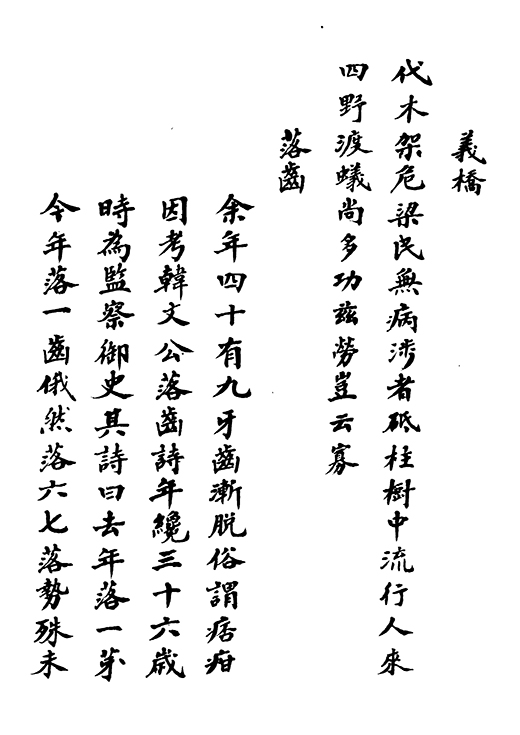 義橋
代木架危梁民無病涉者砥柱樹中流行人來
四野渡蟻尚多功茲勞豈云寡
落齒
余年四十有九牙齒漸脱俗謂痁疳
因考韓文公落齒詩年纔三十六歲
時為監察御史其詩曰去年落一牙
今年落一齒俄然落六七落勢殊未